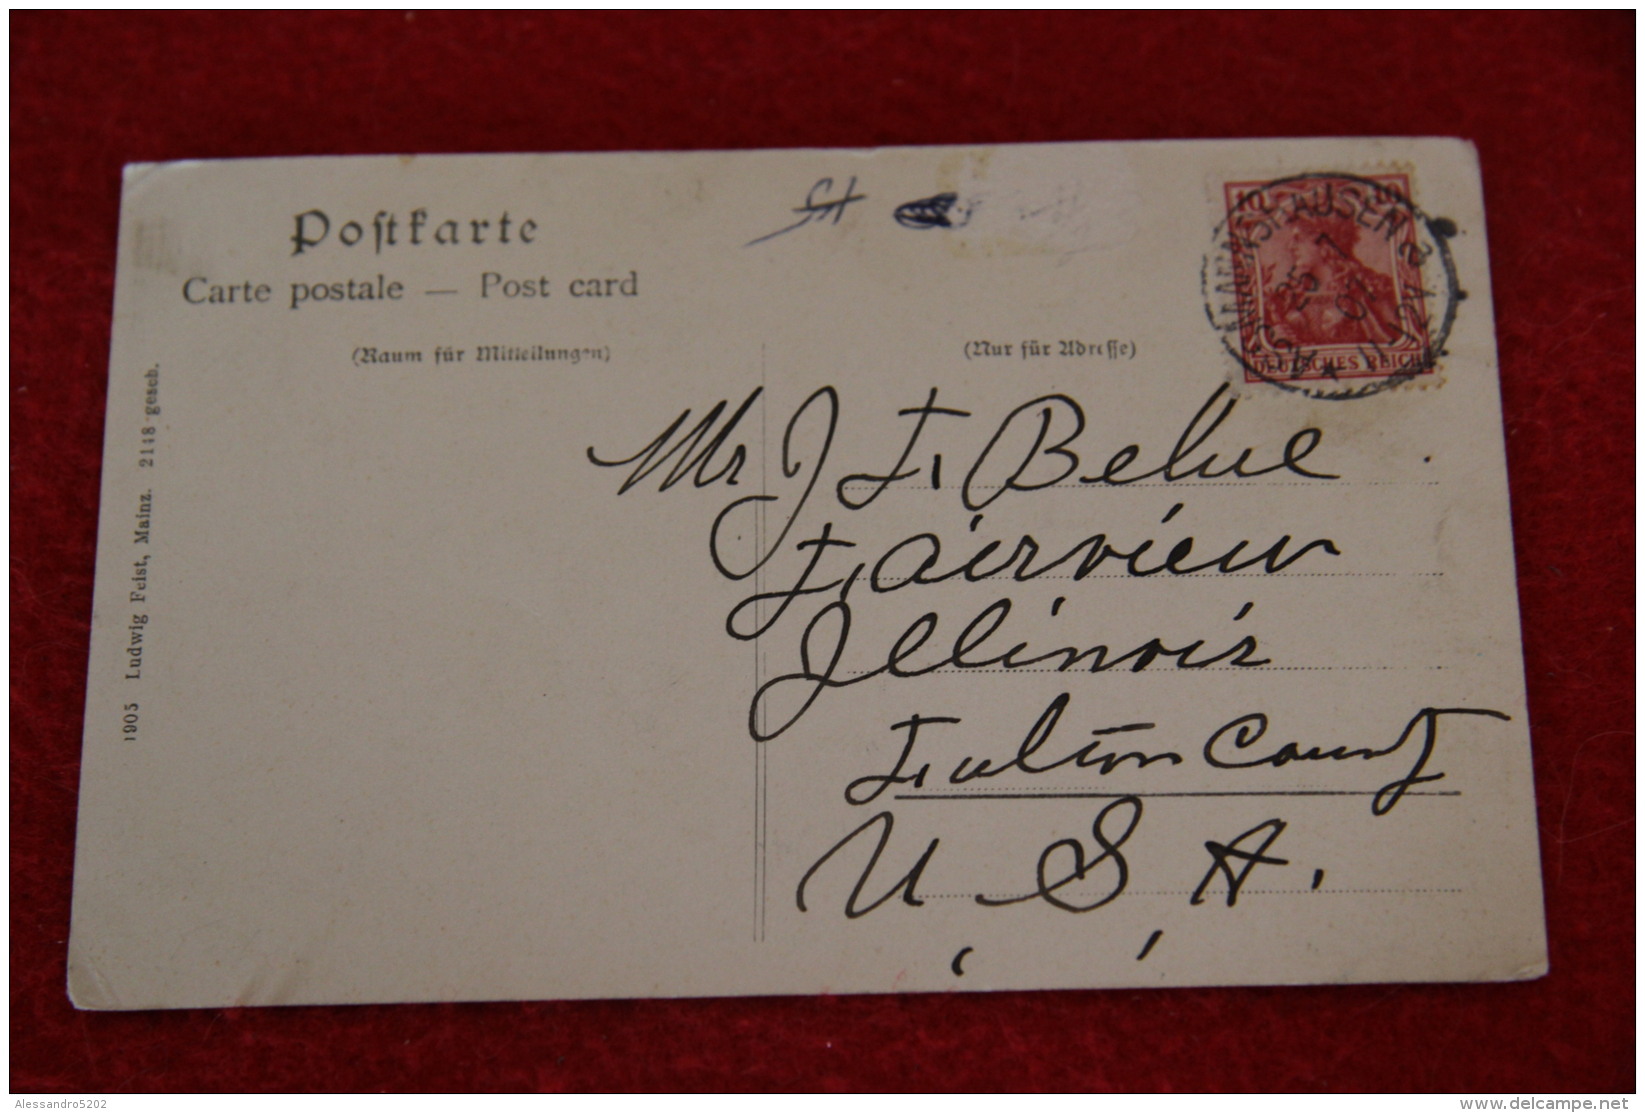 Postkarte
Carte postale — Post card
(Raum für Mitteilungen)
(Nur für Adresse)
10 10
DEUTSCHES REICH
ASSMANNSHAUSEN
25 7
07
1905 Ludwig Feist, Mainz. 2118 gesch.
Mr J F. Belue
Fairview
Illinois
Fulton County
U. S. A.
Alessandro5202
delcampe.net